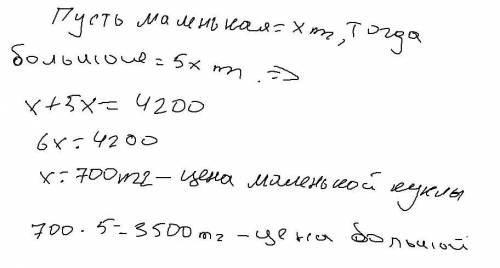 Пусть маленькая = x тг, Тогда
большие = 5x тг. =>
x + 5x = 4200
6x = 4200
x = 700тг – цена маленькой куклы
700 · 5 = 3500 тг – цена большой